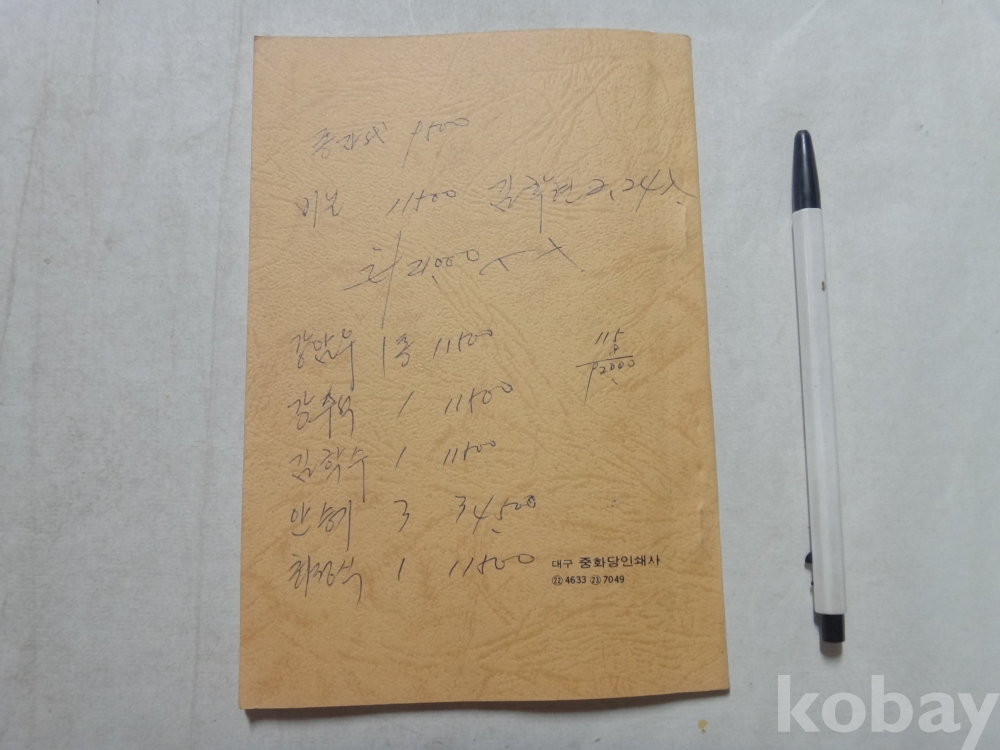 비닐 11500 김학련 2.24
21,000
1층 11500
115
92000
강수석 1 11500
김학수 1 11500
안승혜 3 34,500
최정식 1 11500
대구 중화당인쇄사
㉒ 4633 ㉓ 7049
kobay